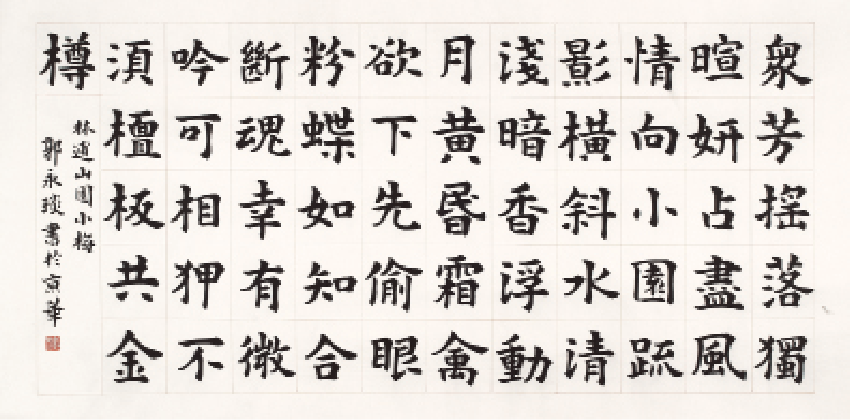 衆芳搖落獨
暄妍占盡風
情向小園疏
影橫斜水清
淺暗香浮動
月黃昬霜禽
欲下先偷眼
粉蝶如知合
斷魂幸有微
吟可相狎不
湏檀板共金
樽
林逋山園小梅
郭永琰書於京華